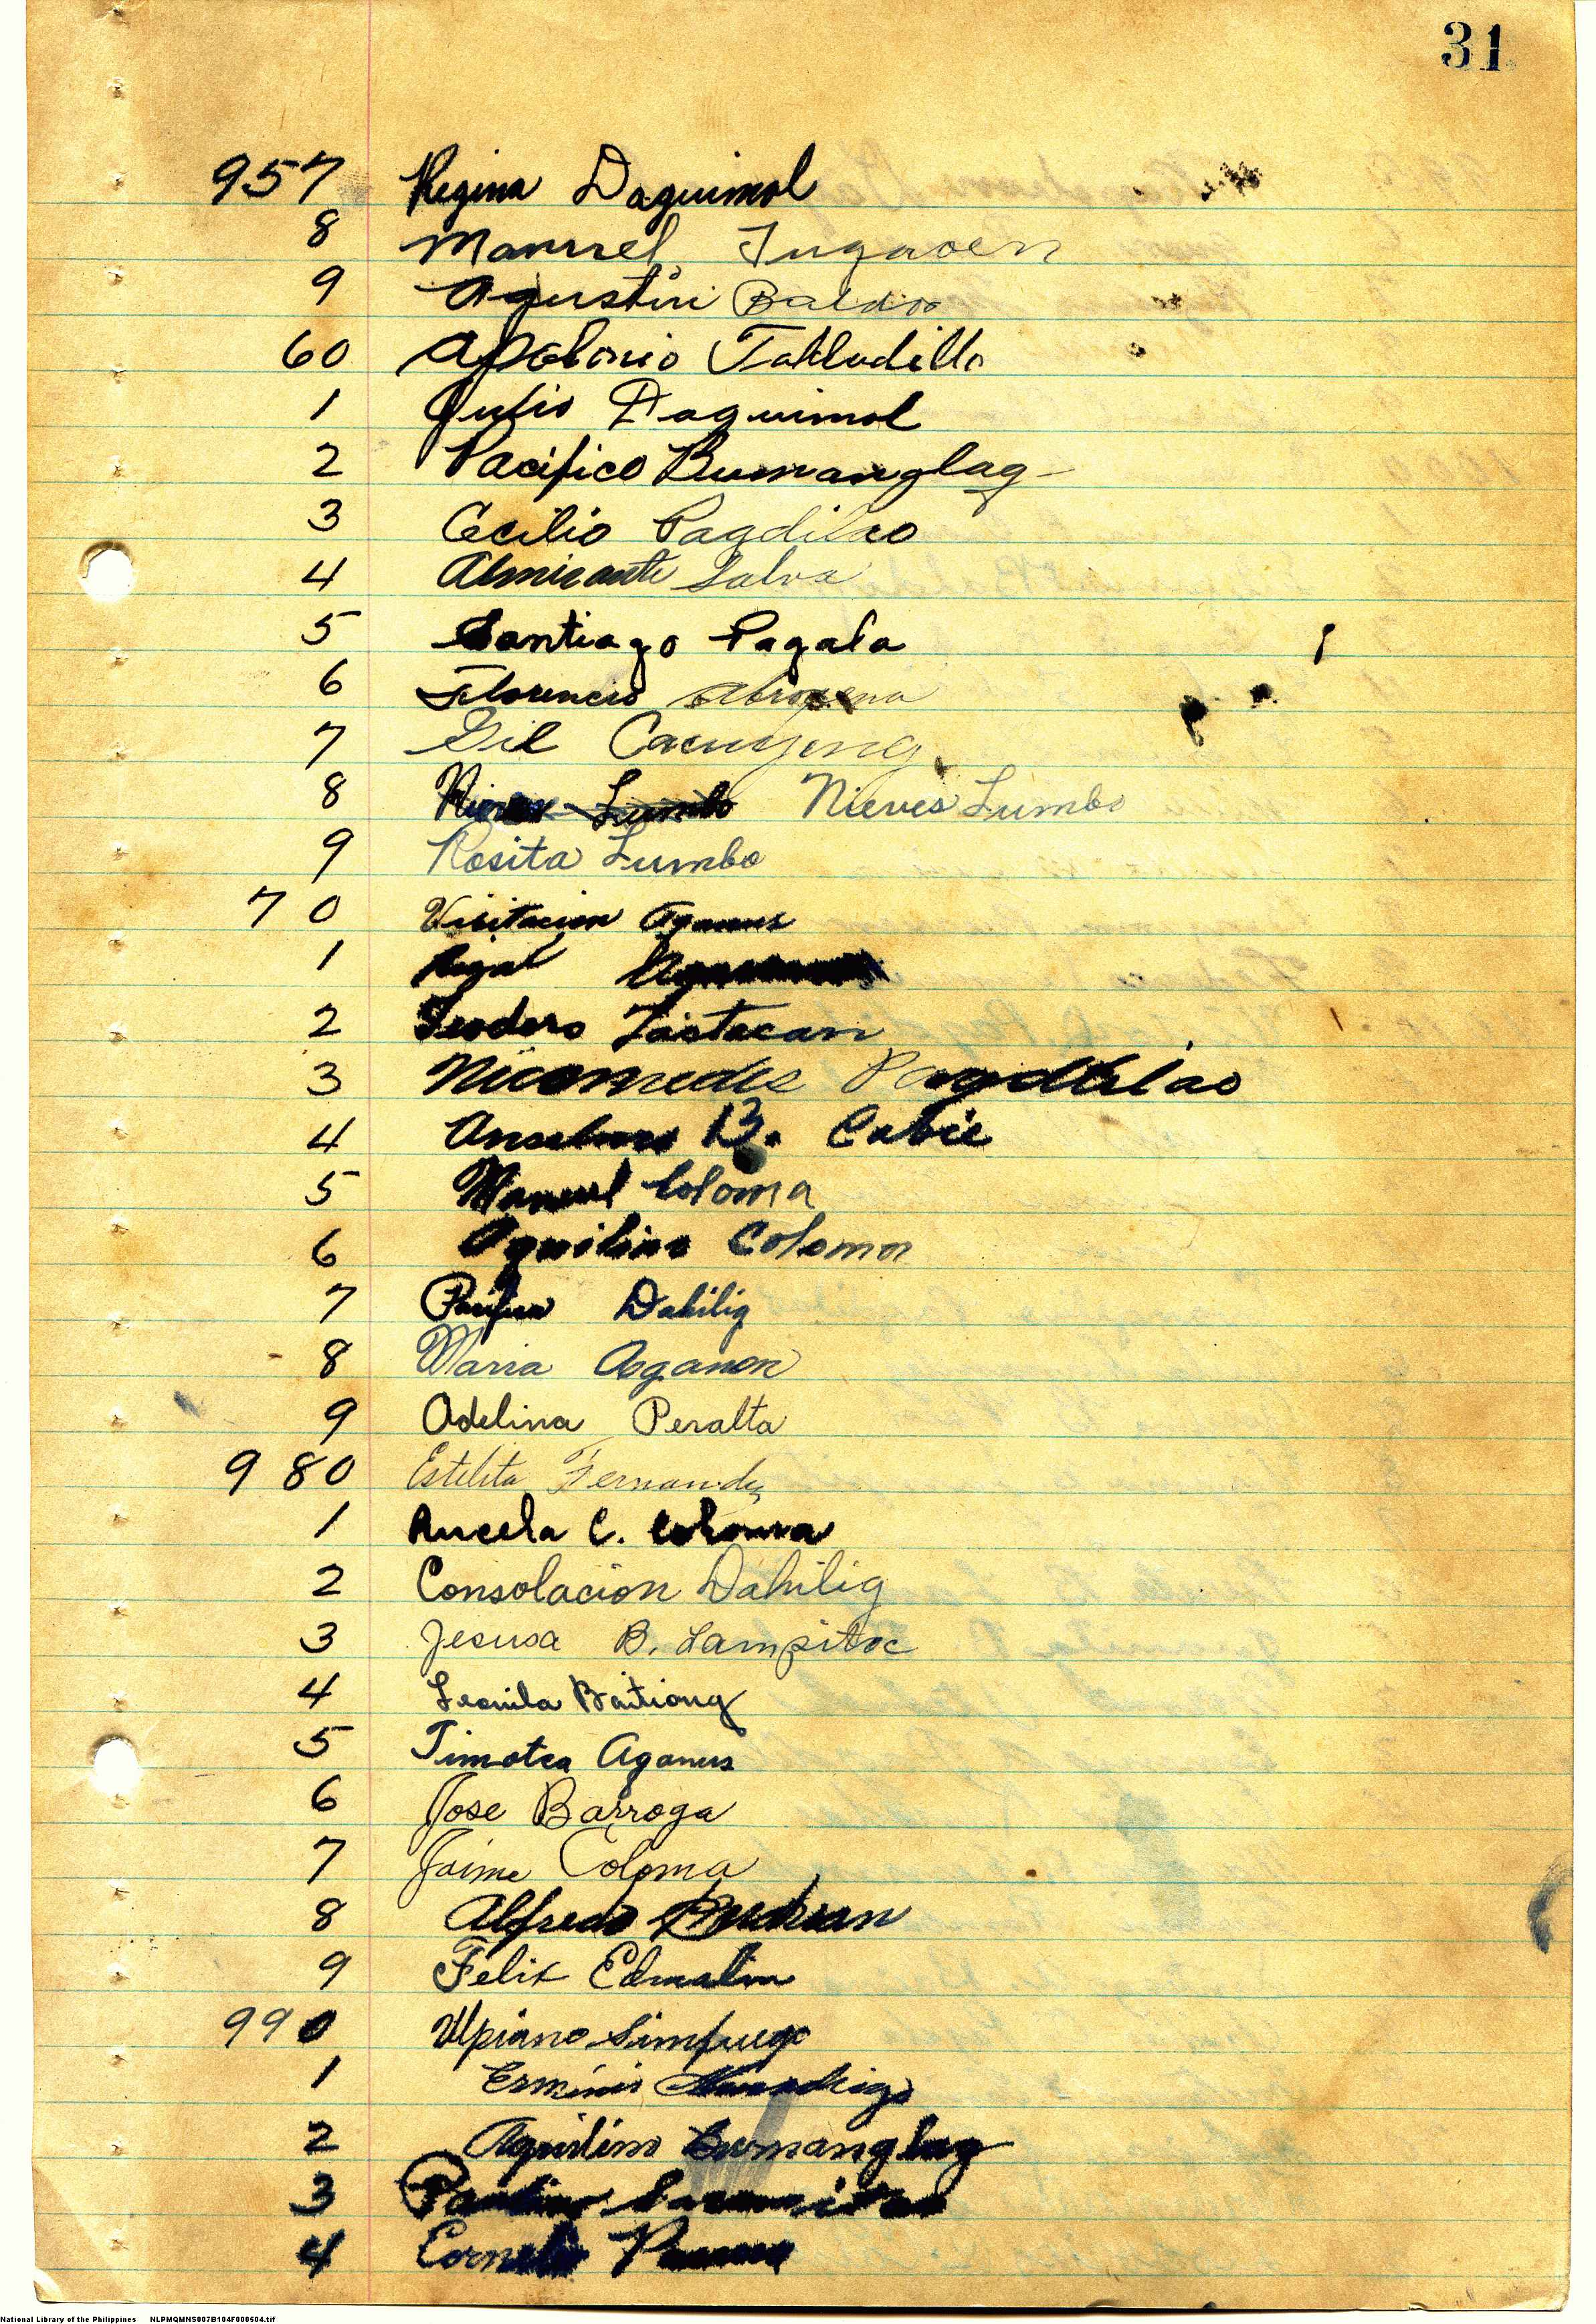 31
957 Regina Daguimol
8 Manuel Tugaoen
9 Agustin Baldos
60 Apolonio Tabludillo
1 Julio Daguimol
2 Pacifico Bumanglag
3 Cecilio Pagdilao
4 Almirante Salva
5 Santiago Pagala
6 Florencio Abrogena
7 Gil Cacuyong
8 Nieves Lumbo Nieves Lumbo
9 Rosita Lumbo
70 Visitacion Aganus
1
2 Teodoro
3 Nicomedes Pagdilao
4 Anselmo B. Cabie
5 Manuel Coloma
6 Aquilino Coloma
7 Pacifica Dahilig
8 Maria Aganon
9 Adelina Peralta
980 Estelita Fernandez
1 C. Coloma
2 Consolacion Dahilig
3 Jesusa B. Lampitoc
4 Leonila Baitiong
5 Timotea Aganus
6 Jose Barroga
7 Jaime Coloma
8 Alfredo
9 Felix Edmalin
990 Ulpiano Simfuego
1 Erminio
2 Aquilino Bumanglag
3
4
National Library of the Philippines NLPMQMNS007B104F000604.tif